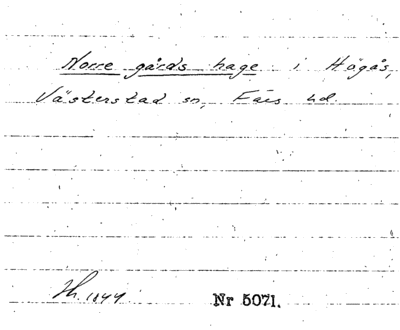 Norre gårds hage i Högås,
Västerstad sn, Färs hd.
Th. 1944
Nr 5071.